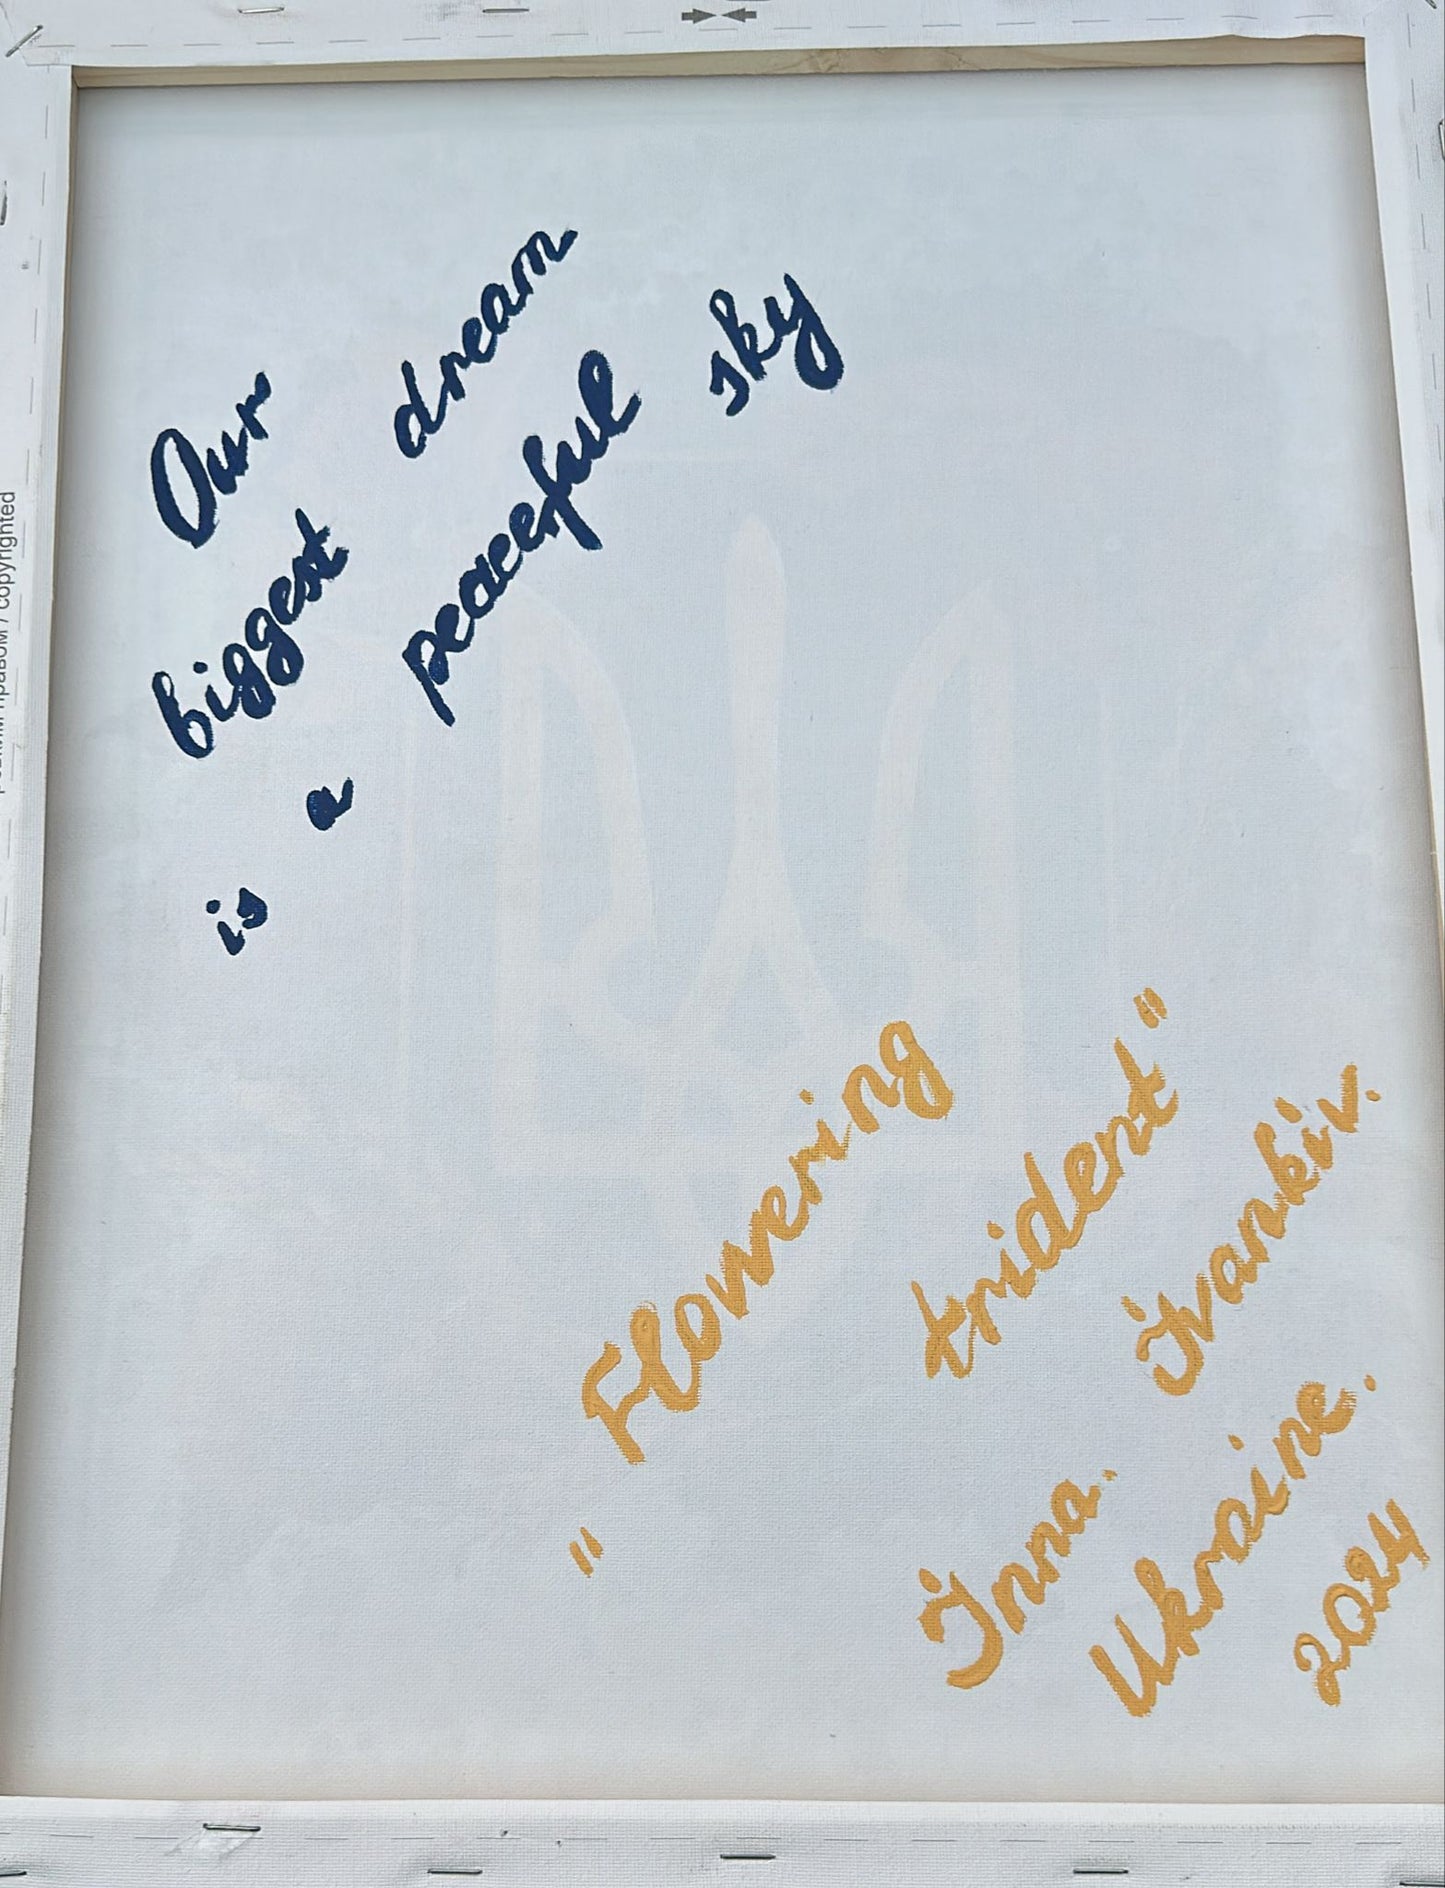 Our dream
biggest peaceful sky
is a
"Flowering trident"
Inna. Ivankiv.
Ukraine.
2024
copyrighted